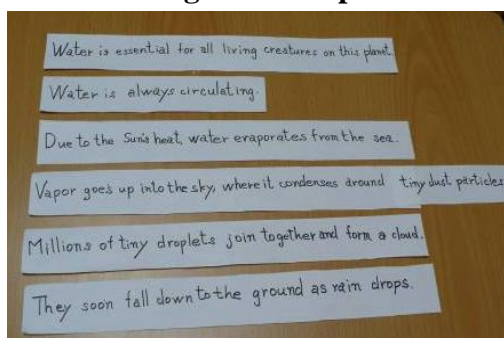 Water is essential for all living creatures on this planet.
Water is always circulating.
Due to the Sun's heat, water evaporates from the sea.
Vapor goes up into the sky, where it condenses around tiny dust particles
Millions of tiny droplets join together and form a cloud.
They soon fall down to the ground as rain drops.